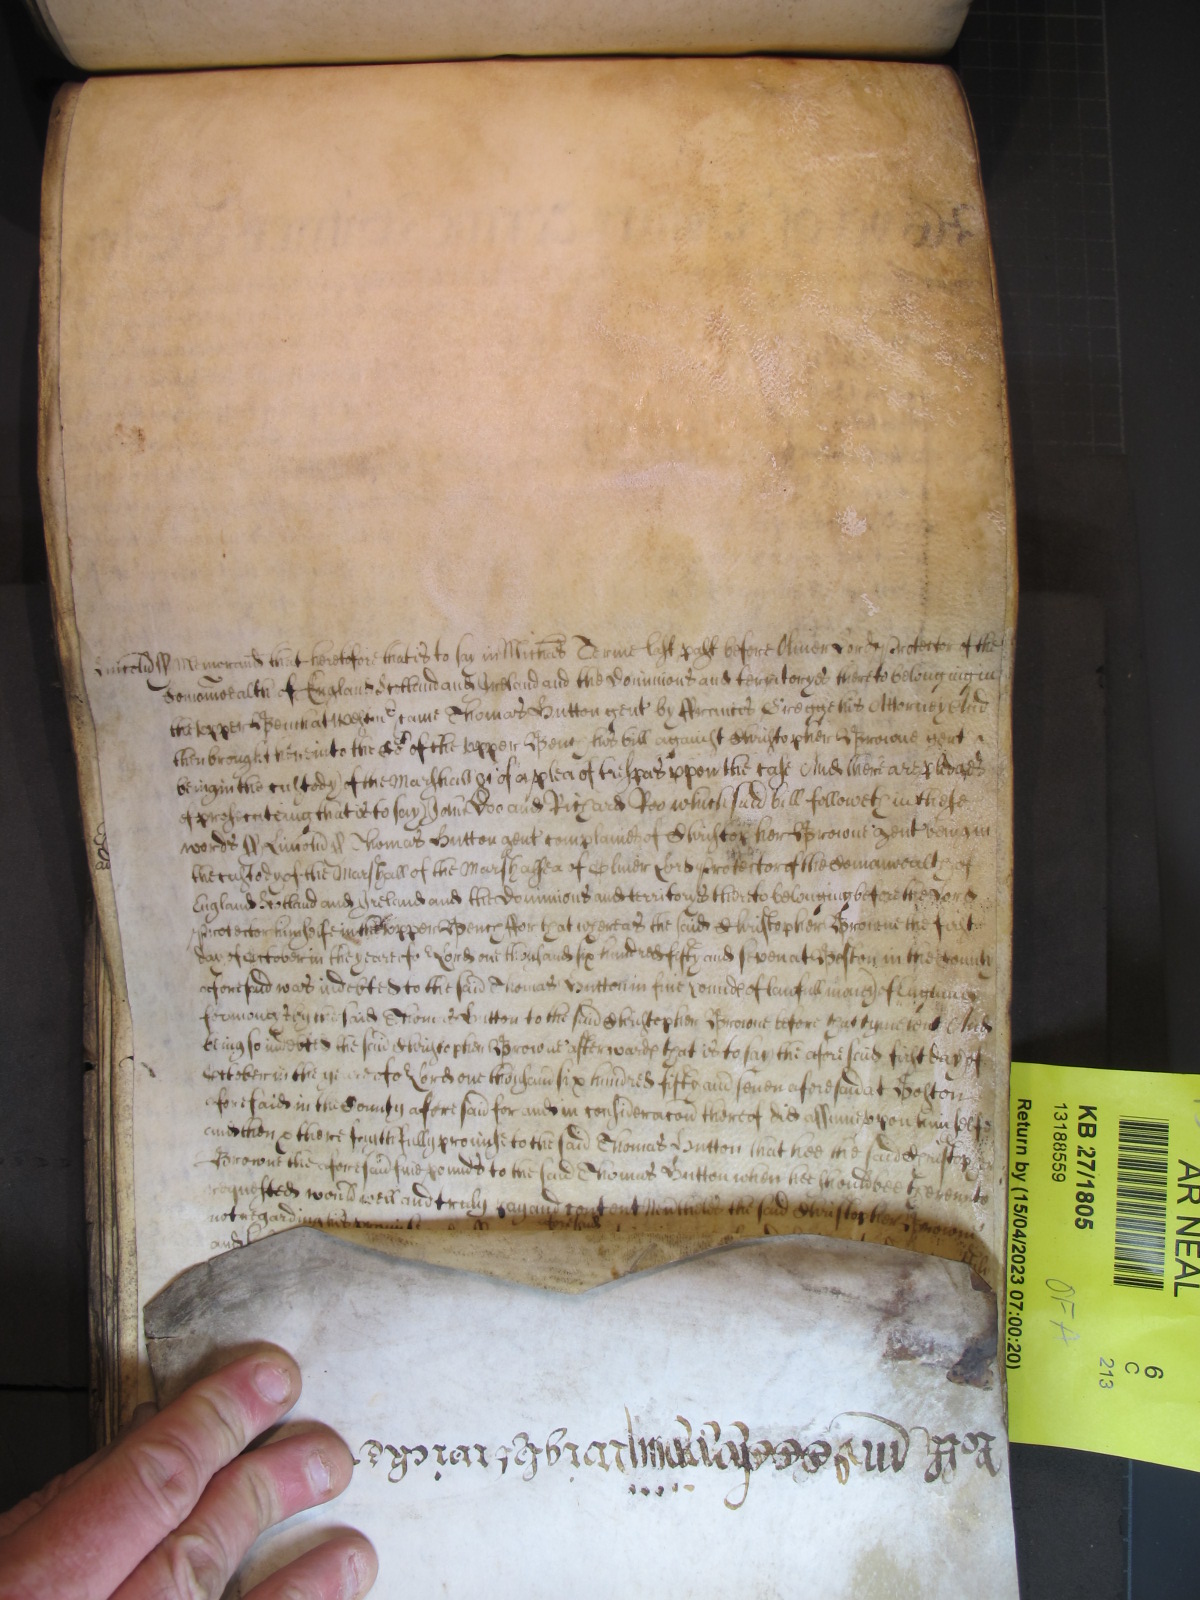 Lincoln ss Memorand that heretofore that is to say in Michas Terme last past before Oliver Lord Protector of the
Comonwealth of England Scotland and Ireland and the Dominions and territoryes thereto belonging in
the upper Bench at Westmr came Thomas Hutton gent by ffrancis his Attorney And
then brought here into the Cort of the upper Bench his bill against Christopher Browne gent
being in the custody of the Marshall &c of a plea of trespas uppon the case And there are pledges
of prosecuting that is to say John Doo and Richard Roo which said bill followeth in these
words ss Lincoln ss Thomas Hutton gent complaines of Christopher Browne gent being in
the custody of the Marshall of the Marshalsea of Oliver Lord Protector of the Comonwealth of
England Scotland and Ireland and the Dominions and territorys thereto belonging before the Lord
Protector himselfe in the upper Bench ffor that whereas the said Christopher Browne the first
day of October in the yeare of o Lord one thousand six hundred fifty and seven at Boston in the County
aforesaid was indebted to the said Thomas Hutton in five pounds of lawfull money of England
for money by the said Thomas Hutton to the said Christopher Browne before that tyme lent And
being so indebted the said Christopher Browne afterwards that is to say the aforesaid first day of
October in the yeare of o Lord one thousand six hundred fifty and seven aforesaid at Boston
aforesaid in the County aforesaid for and in consideracon thereof did assume upon himselfe
and then & there faithfully promise to the said Thomas Hutton that hee the said Christopher
Browne the aforesaid five pounds to the said Thomas Hutton when hee should bee thereunto
requested would well and truly pay and content Neverthelesse the said Christopher Browne
not regarding his
and
KB 27/1805
13188559
Return by (15/04/2023 07:00:20)
AR NEAL
OFA
6
C
213